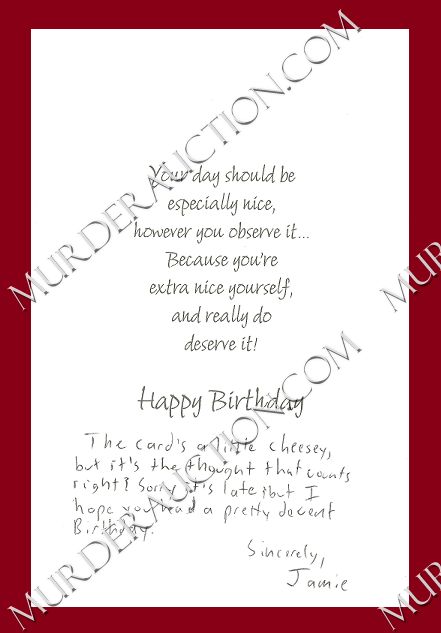 Your day should be
especially nice,
however you observe it...
Because you're
extra nice yourself,
and really do
deserve it!
Happy Birthday
The card's a little cheesey,
but it's the thought that counts
right? Sorry it's late, but I
hope you had a pretty decent
Birthday.
Sincerely,
Jamie
MURDERAUCTION.COM
MURDERAUCTION.COM
MURDERAUCTION.COM
MUR
MUR